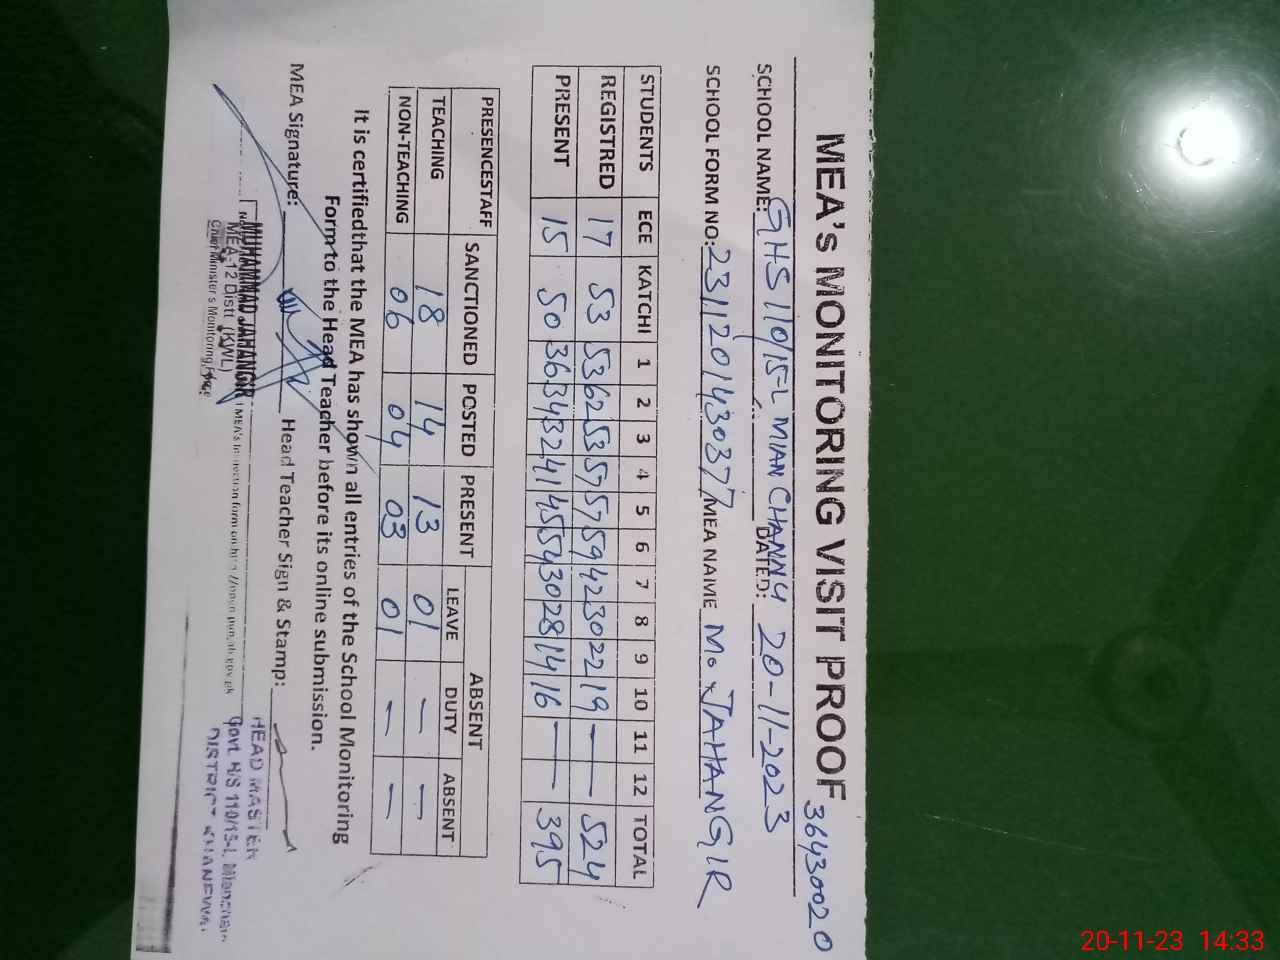 MEA's MONITORING VISIT PROOF
36430020
SCHOOL NAME: GHS 110/15-L MIAN CHANNU DATED: 20-11-2023
SCHOOL FORM NO: 231120143037 MEA NAME M. JAHANGIR
STUDENTS ECE KATCHI 1 2 3 4 5 6 7 8 9 10 11 12 TOTAL
REGISTRED 17 53 53 62 53 57 57 59 42 30 22 19 — — 524
PRESENT 15 50 36 34 32 41 45 54 30 28 14 16 — — 395
PRESENCESTAFF SANCTIONED POSTED PRESENT ABSENT
LEAVE DUTY ABSENT
TEACHING 18 14 13 01 — —
NON-TEACHING 06 04 03 01 — —
It is certifiedthat the MEA has shown all entries of the School Monitoring
Form to the Head Teacher before its online submission.
MEA Signature: Head Teacher Sign & Stamp:
MUHAMMAD JAHANGIR
MEA-12 Distt (KWL)
Chief Minister's Monitoring Force
HEAD MASTER
Govt. H/S 110/15-L
DISTRICT KHANEWAL
20-11-23 14:33